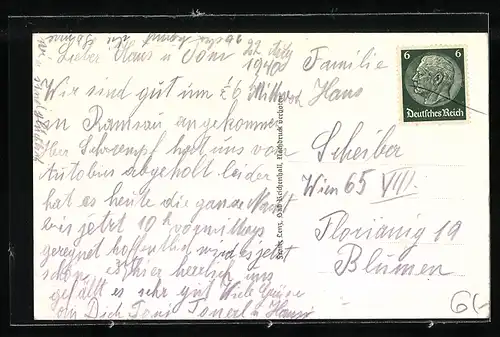 Lieber Hans u
22 Aug
1940
Wir sind gut um ½6 Mittwoch
in Ramsau angekommen
Herr hat uns vom
Autobus abgeholt leider
hat es heute die ganze Nacht
bis jetzt 10h vormittags
geregnet hoffentlich wird es jetzt
schön, es hier herrlich uns
gefällt es sehr gut Viele Grüße
an Dich Toni u Hansi
Familie
Hans
Scheiber
Wien 65 VIII.
Florianig 19
Blumen
6 6
Deutsches Reich
Bad Reichenhall, Nachdruck verboten
6(-